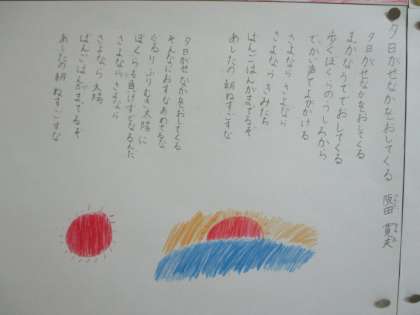 夕日がせなかをおしてくる 阪田寛夫
夕日がせなかをおしてくる
まっかなうででおしてくる
歩くぼくらのうしろから
でっかい声でよびかける
さよなら さよなら
さよなら きみたち
ばんごはんがまってるぞ
あしたの朝ねすごすな
夕日がせなかをおしてくる
そんなにおすなあわてるな
ぐるりふりむき太陽に
ぼくらも負けずどなるんだ
さよなら さよなら
さよなら 太陽
ばんごはんがまってるぞ
あしたの朝ねすごすな